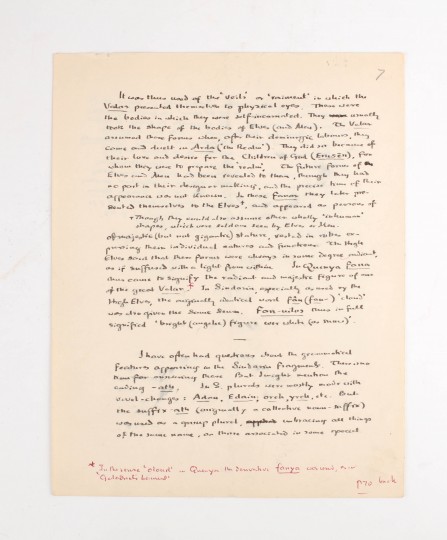 7
It was thus used of the 'veils' or 'raiment' in which the
Valar presented themselves to physical eyes. These were
the bodies in which they were self-incarnated. They usually
took the shape of the bodies of Elves (and Men). The Valar
assumed these forms when, after their demiurgic labours, they
came and dwelt in Arda ('the Realm'). They did so because of
their love and desire for the Children of God (Erusēn), for
whom they were to prepare the 'realm'. The future forms of
Elves and Men had been revealed to them, though they had
no part in their design or making, and the precise time of their
appearance was not known. In these fanar they later pre-
sented themselves to the Elves†, and appeared as persons of
†Though they could also assume other wholly 'inhuman'
shapes, which were seldom seen by Elves or Men.
of majestic (but not gigantic) stature, vested in robes ex-
pressing their individual natures and functions. The High
Elves said that these forms were always in some degree radiant,
as if suffused with a light from within. In Quenya fana
thus came to signify the radiant and majestic figure of one
of the great Valar.* In Sindarin, especially as used by the
High Elves, the originally identical word fân (fan-) 'cloud'
was also given the same sense. Fan-uilos thus in full
signified 'bright (angelic) figure ever white (as snow)'.
I have often had questions about the grammatical
features appearing in the Sindarin fragments. There is no
room for answering these. But I might mention the
ending -ath. In S. plurals were mostly made with
vowel-changes: Adan, Edain; orch, yrch, etc. But
the suffix -ath (originally a collective noun-suffix)
was used as a group plural, embracing all things
of the same name, or those associated in some special
* In the sense 'cloud' in Quenya the derivative fanya was used,
'Galadriel's Lament'
pto back